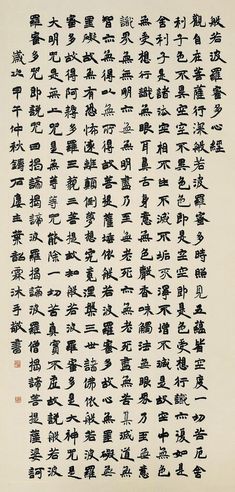 般若波羅蜜多心經
觀自在菩薩行深般若波羅蜜多時照見五蘊皆空度一切苦厄舍
利子色不異空空不異色色即是空空即是色受想行識亦復如是
舍利子是諸法空相不生不滅不垢不淨不增不減是故空中無色
無受想行識無眼耳鼻舌身意無色聲香味觸法無眼界乃至無意
識界無無明亦無無明盡乃至無老死亦無老死盡無苦集滅道無
智亦無得以無所得故菩提薩埵依般若波羅蜜多故心無罣礙無
罣礙故無有恐怖遠離顛倒夢想究竟涅槃三世諸佛依般若波
羅蜜多故得阿耨多羅三藐三菩提故知般若波羅蜜多是大神咒是
大明咒是無上咒是無等等咒能除一切苦真實不虛故說般若波
羅蜜多咒即說咒曰揭諦揭諦波羅揭諦波羅僧揭諦菩提薩婆訶
歲次甲午仲秋石廬主葉沐手敬書